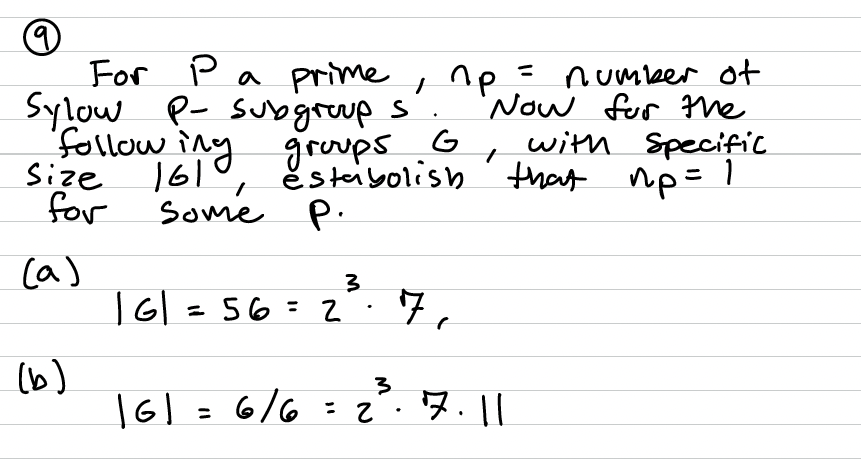 ⑨
For P a prime, np = number of
Sylow p- subgroups. Now for the
following groups G, with specific
size |G|, estabolish that np = 1
for some p.
(a)
|G| = 56 = 2³·7,
(b)
|G| = 6/6 = 2³·7·11